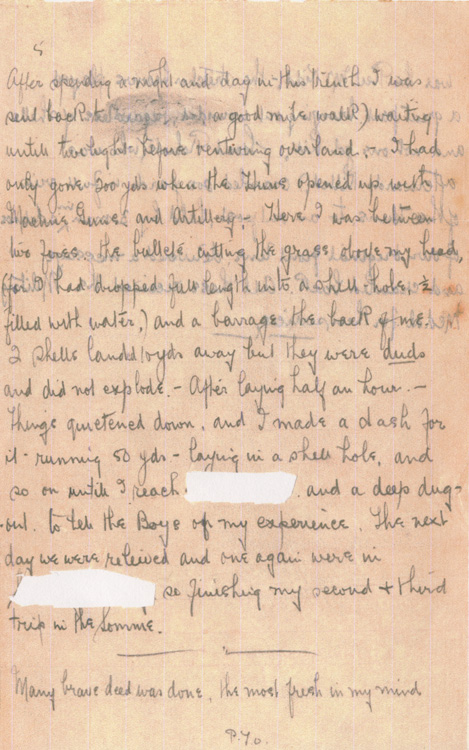 5
After spending a night and day in this trench I was
sent back to a good mile walk) waiting
untill twilight before venturing overland.- I had
only gone 300 yds when the Huns opened up with
Machine Guns and Artillery.- Here I was between
two fires the bullets cutting the grass above my head,
(for I had dropped full length into a shell hole, ½
filled with water,) and a barrage the back of me.
2 shells landed 10 yds away but they were duds
and did not explode.- After laying half an hour.-
things quietened down, and I made a dash for
it - running 50 yds - laying in a shell hole, and
so on untill I reach and a deep dug-
-out. to tell the Boys of my experience. The next
day we were relieved and one again were in
so finishing my second + third
trip in the Somme.
Many brave deed was done, the most fresh in my mind
P.T.O.